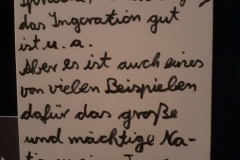 das Ingeration gut
ist u. a.
Aber es ist auch eines
von vielen Beispielen
dafür das große
und mächtige Na-